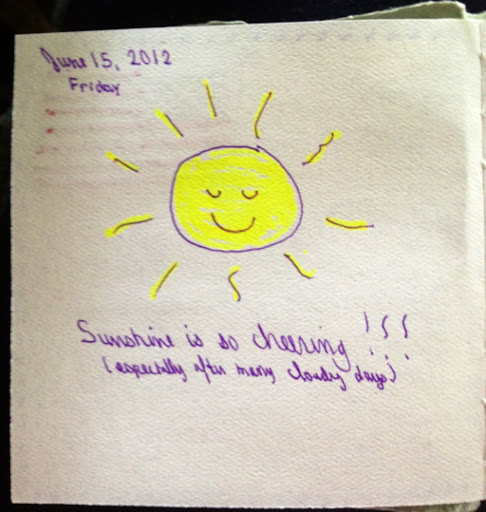 June 15, 2012
Friday
Sunshine is so cheering !!!
(especially after many cloudy days)